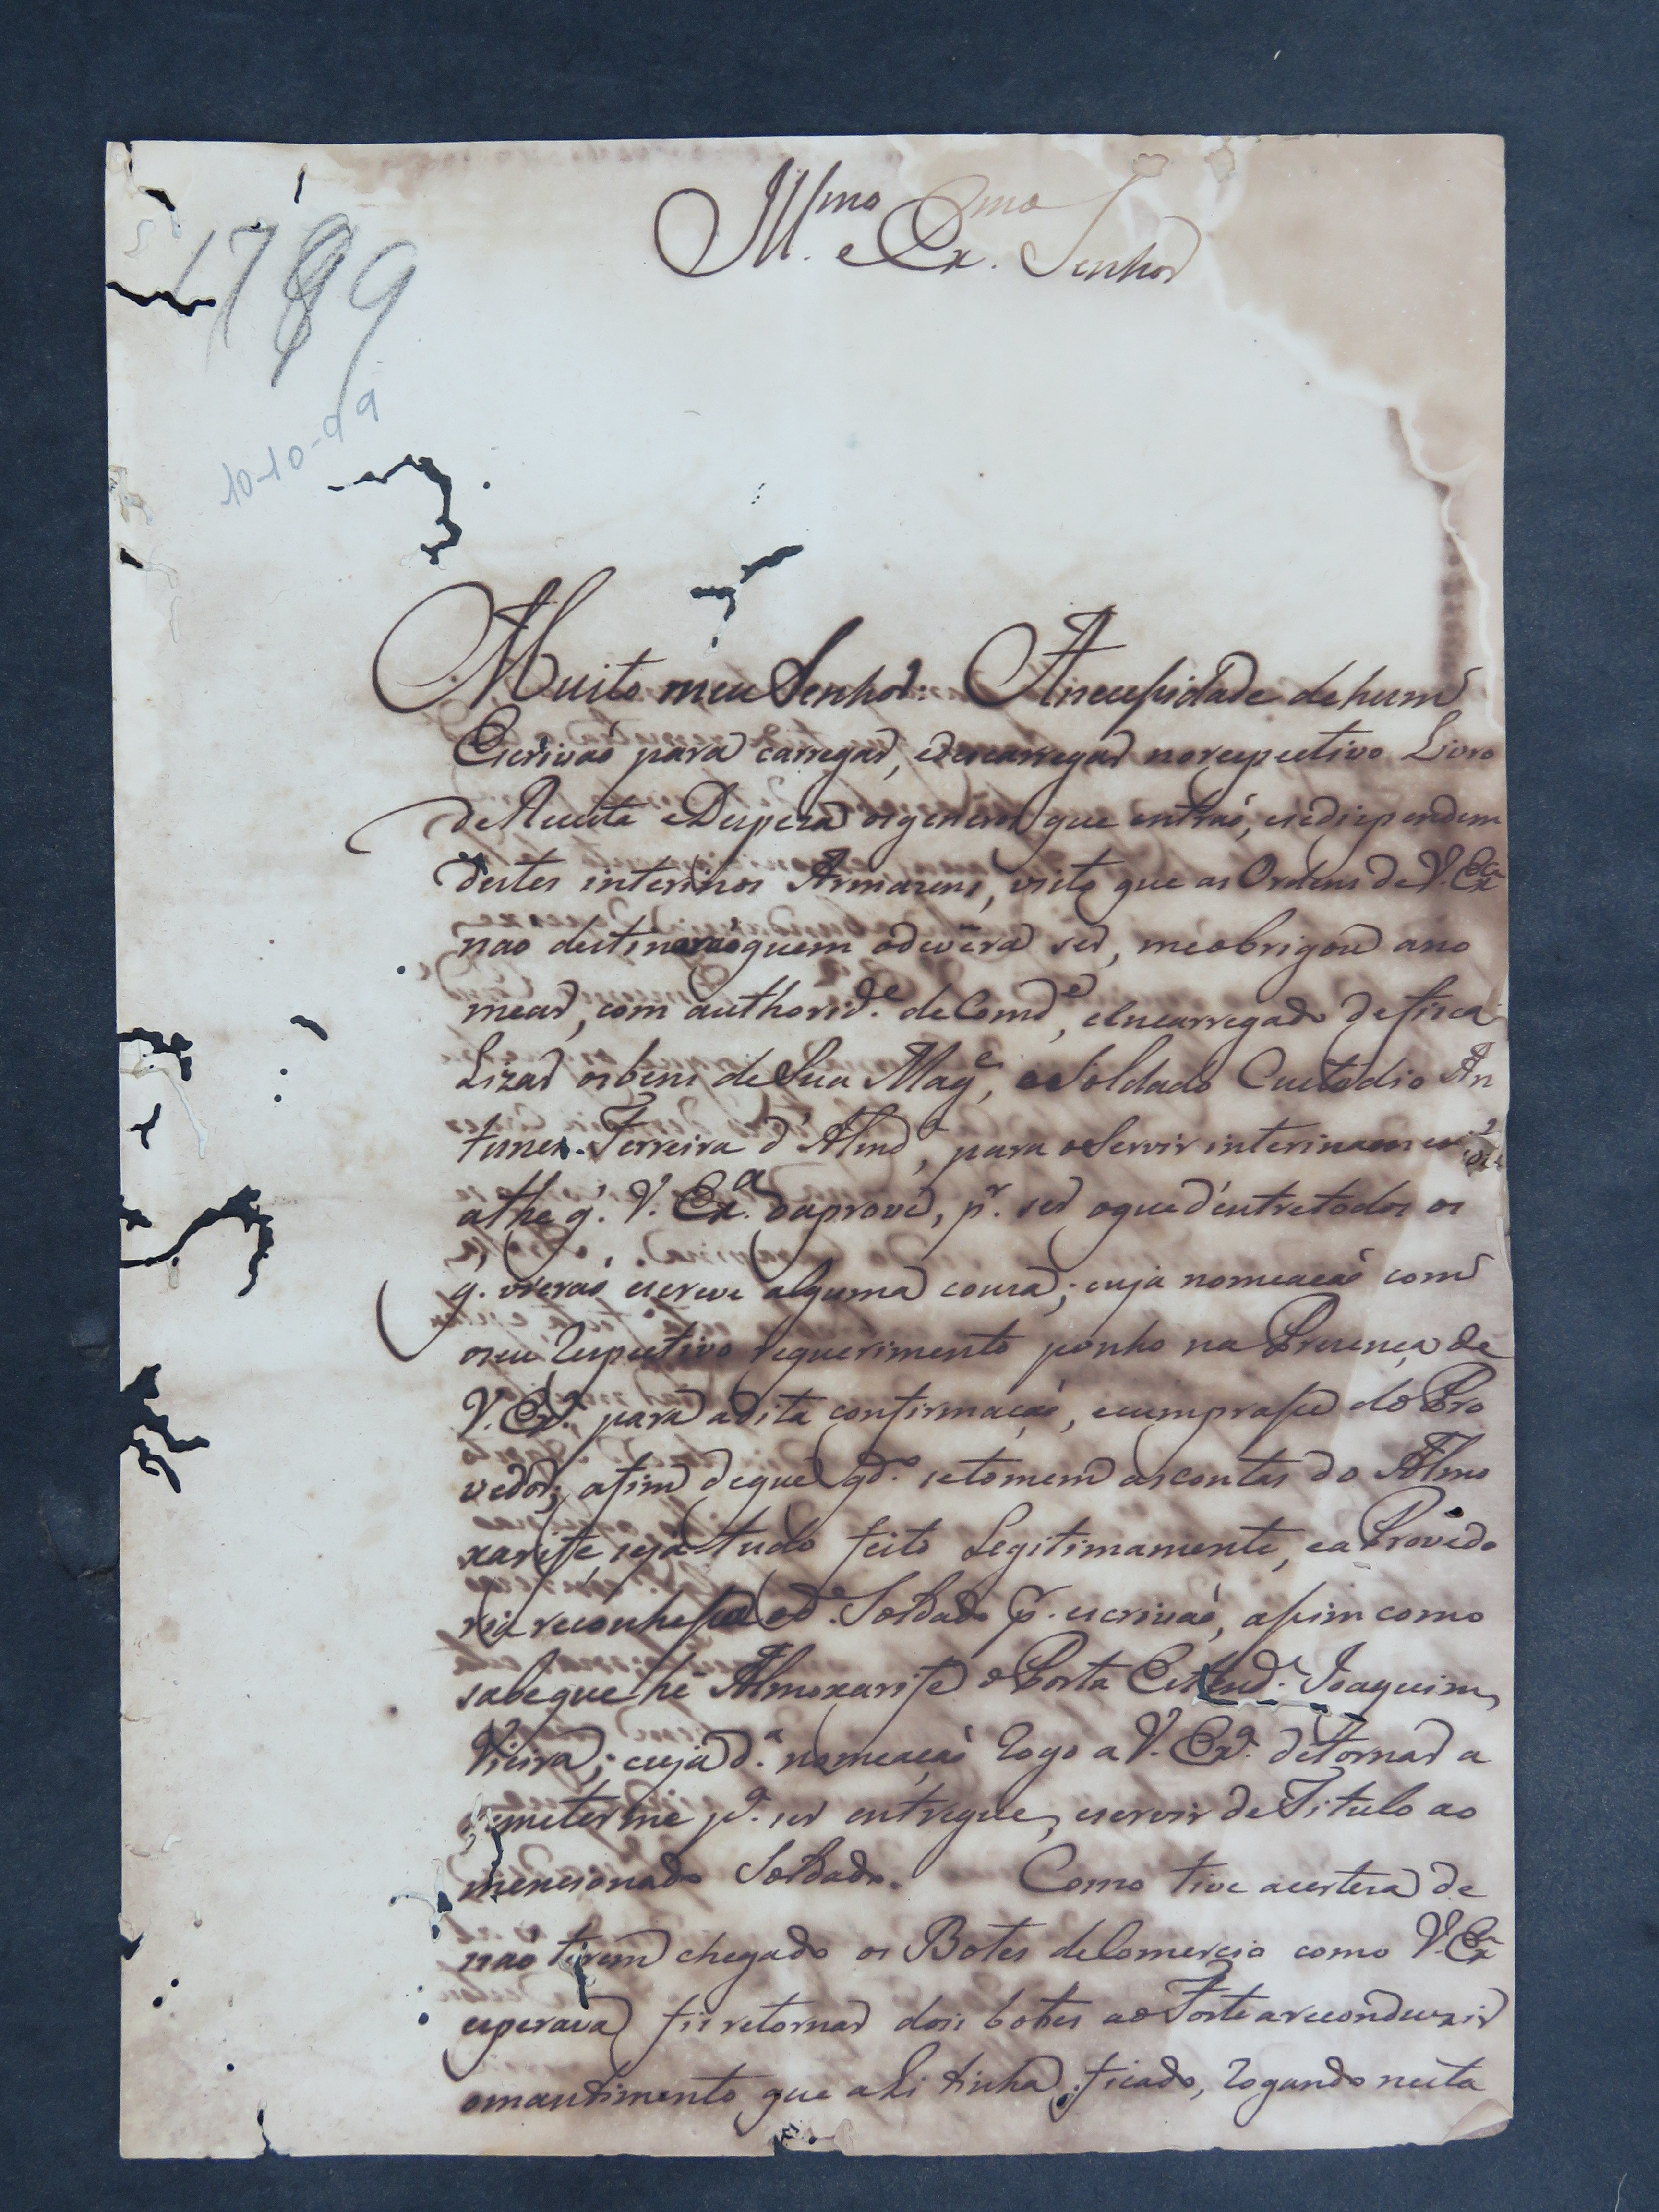 Ill.mo e Ex.mo Senhor
1789
10-10-99
Muito meu Senhor: A necessidade de hum
Escrivaõ para carregar, e descarregar no respectivo Livro
de Receita e Despeza os generos que entraõ, e se dispendem
destes interinos Armazens, visto que as Ordens de V. Ex.ca
naõ destinaraõ quem o devera ser, me obrigou a no
mear, com authorid.e de Comd.e, e Encarregado de fisca
Lizar os bens de Sua Mag.e, o Soldado Custodio An
tunes Ferreira d'Almd.a, para o Servir interinam
athe q. V. Ex.a o aprove, p.r ser o que d'entre todos os
q. vieraõ escreve alguma couza; cuja nomeaçaõ com
o seu respectivo requerimento ponho na Prezença de
V. Ex.a para a dita confirmaçaõ, e cumprasse do Pro
vedor; afim de que qd.o se tomem as contas do Almo
xarife seja tudo feito Legitimamente, e a Provedo
ria reconhessa o d.o Soldado p.r escrivaõ, assim como
sabe que he Almoxarife o Porta Estend.e Joaquim
Vieira; cuja d.a nomeaçaõ rogo a V. Ex.a de tornar a
remeterme p.a ser entregue, e servir de Titulo ao
mencionado Soldado. Como tive a certeza de
naõ terem chegado os Botes de Comercio como V. Ex.a
esperava fis retornar dois botes ao Forte a reconduzir
o mantimento que ahi tinha ficado, rogando nesta